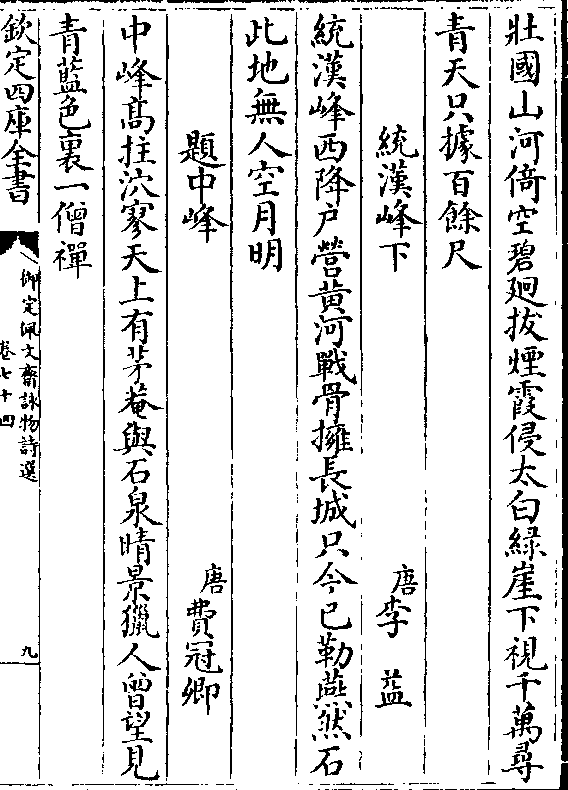 壯國山河倚空碧廻拔煙霞侵太白緑崖下視千萬尋
青天只據百餘尺
統漢峰下 唐李益
統漢峰西降户營黄河戰骨擁長城只今已勒燕然石
此地無人空月明
題中峰 唐費冠卿
中峰髙拄泬寥天上有茅菴與石泉晴景獵人曾望見
青藍色裏一僧禪
欽定四庫全書
御定佩文齋詠物詩選
卷七十四
九